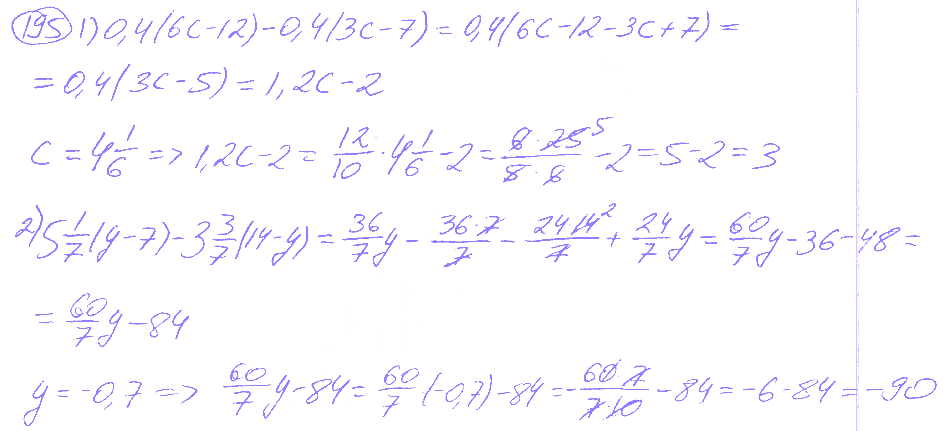 195 1) 0,4(6c-12)-0,4(3c-7)=0,4(6c-12-3c+7)=
=0,4(3c-5)=1,2c-2
c=4 1/6 => 1,2c-2= 12/10 · 4 1/6 -2= (6·25^5)/(5·6) -2=5-2=3
2) 5 1/7 (y-7)-3 3/7 (14-y)= 36/7 y - (36·7)/7 - (24·14^2)/7 + 24/7 y= 60/7 y-36-48=
= 60/7 y-84
y=-0,7 => 60/7 y-84= 60/7 (-0,7)-84=- (60·7)/(7·10) -84=-6-84=-90